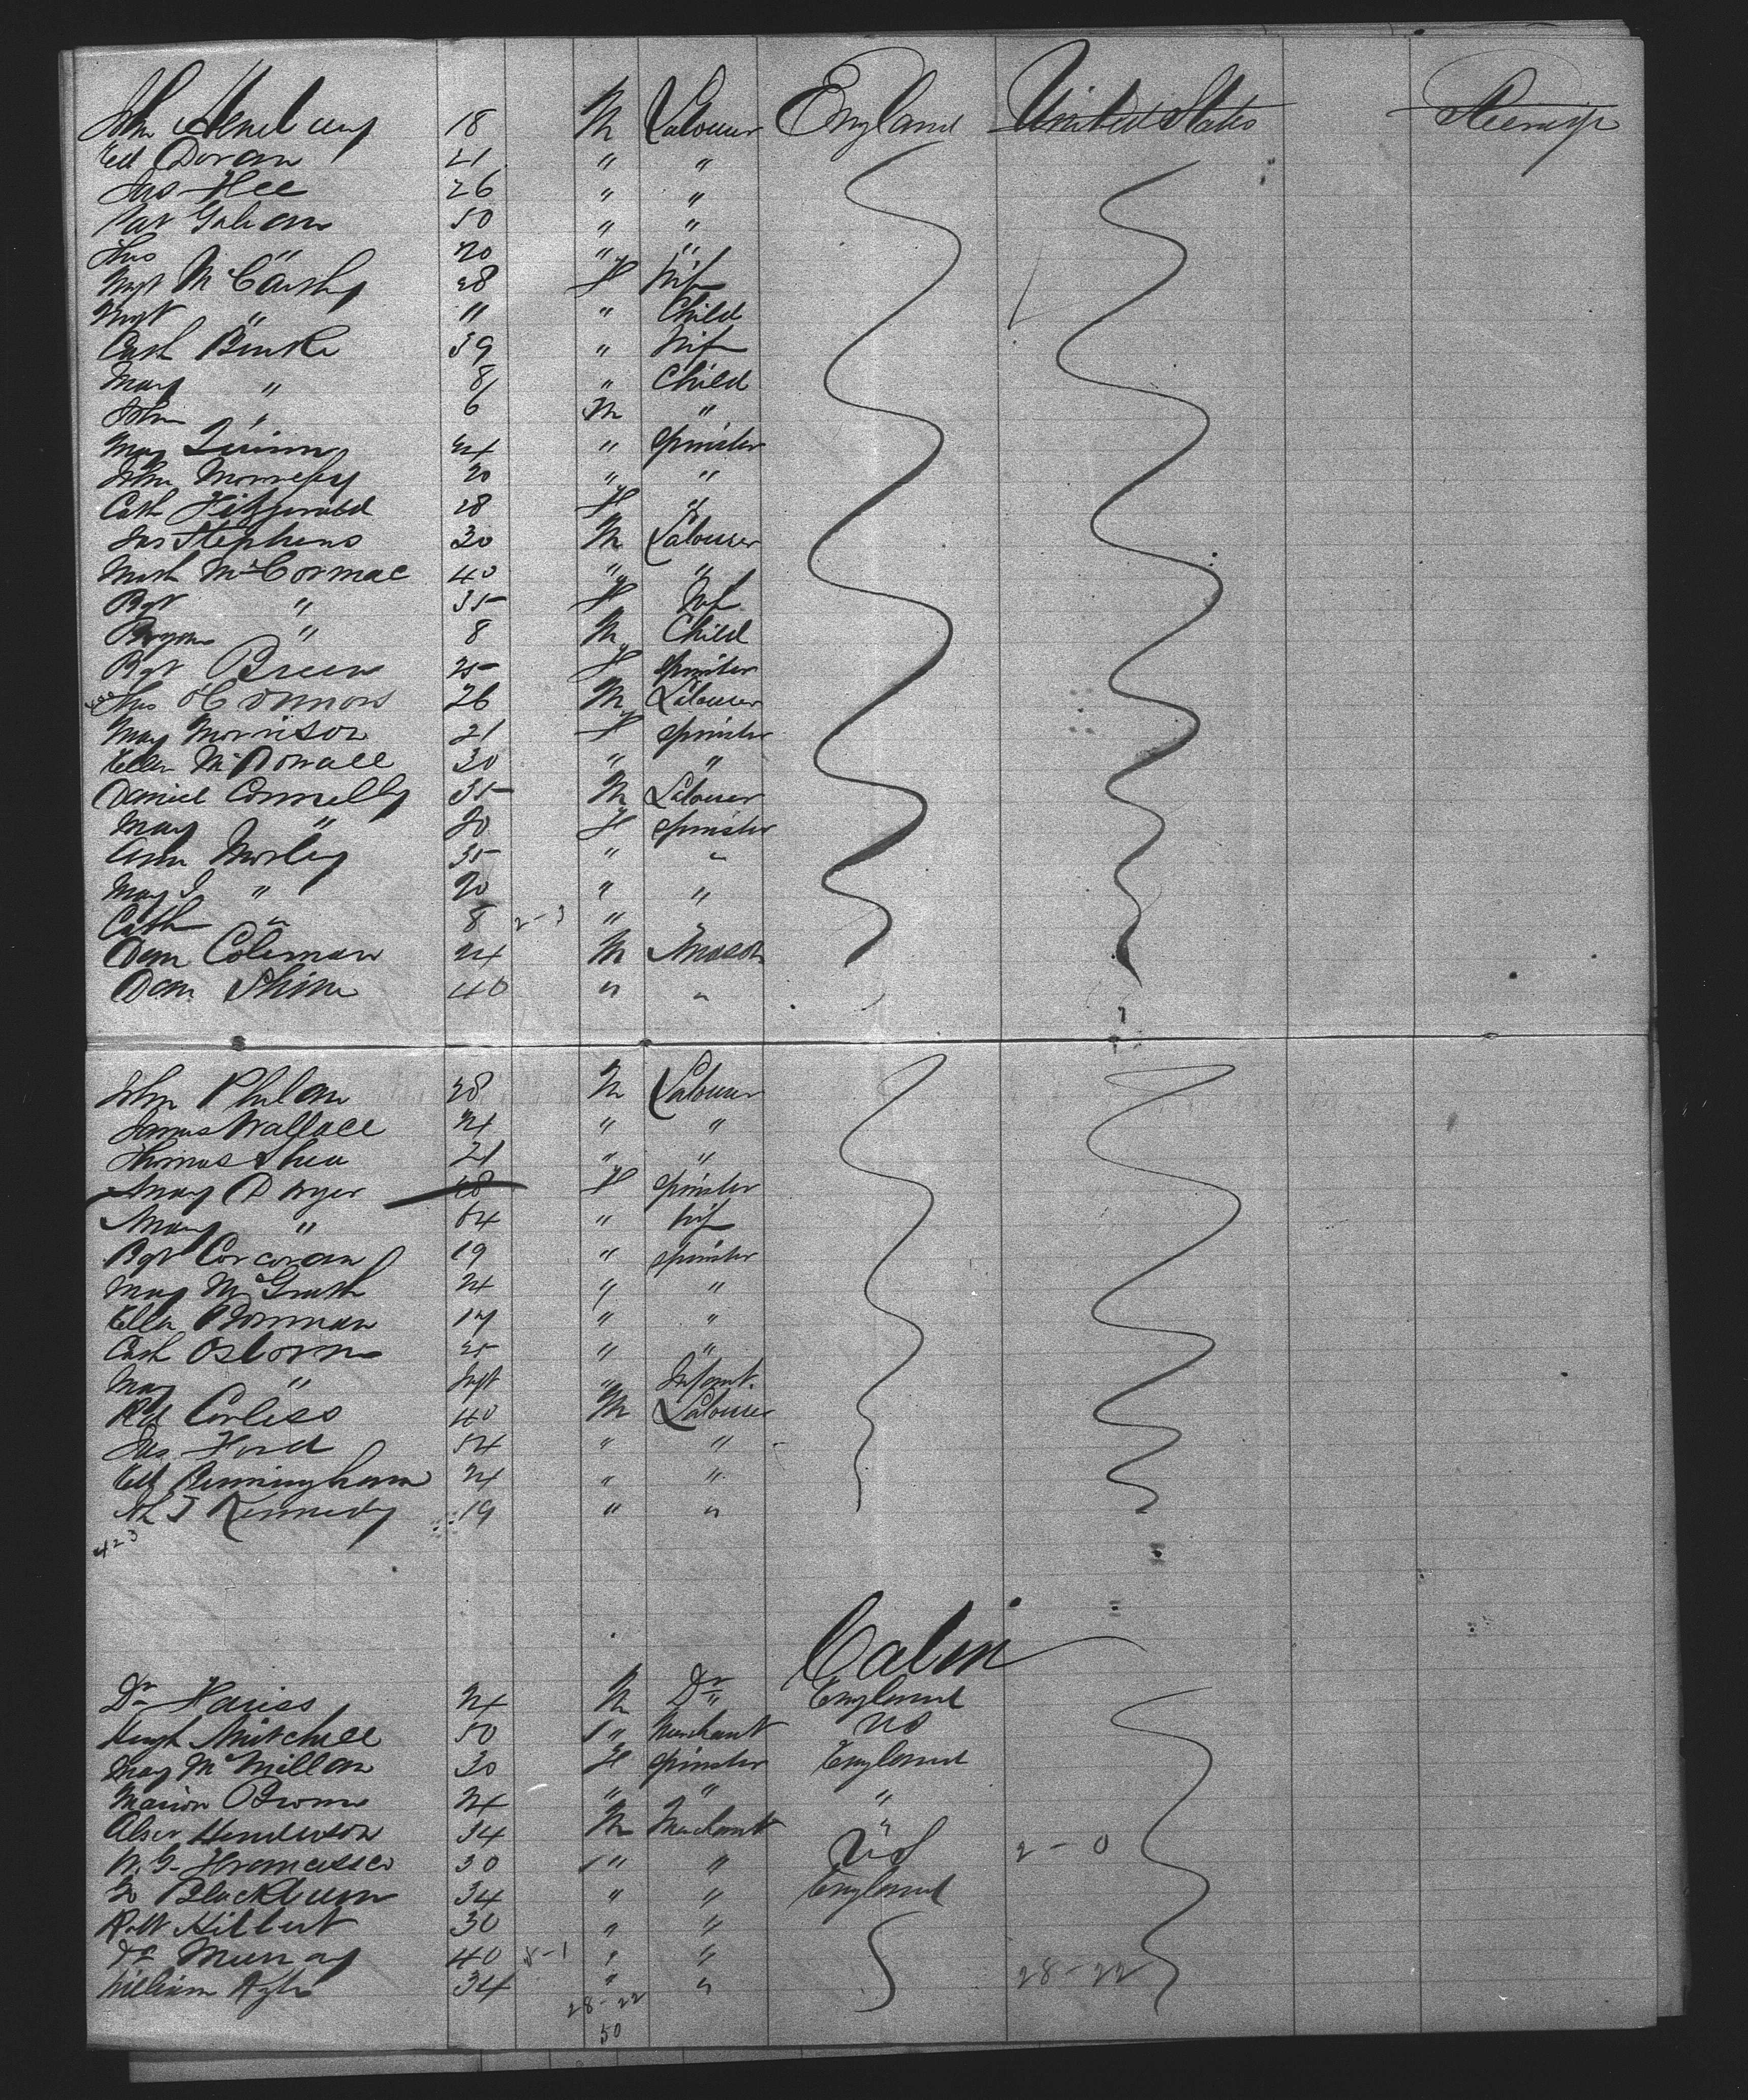 John 18 M Labourer England United States Steerage
Ed Doran 21 " "
Jas Hee 26 " "
Pat 50 " "
Thos " 20 " "
Mgt McCarthy 28 F Wife
Mgt " 11 " Child
Cath Burke 39 " Wife
Mary " 8 " Child
John " 6 M "
Mary Quinn 24 " Spinster
John Morrissy 20 " "
Cath Fitzgerald 28 F "
Jas Stephens 30 M Labourer
McCormac 40 " "
Bgt " 35 F Wife
" 8 M Child
Bgt Breen 25 F Spinster
Thos O'Connors 26 M Labourer
Mary Morrison 21 F Spinster
Ellen McDonall 30 " "
Daniel Connelly 35 M Labourer
Mary " 20 F Spinster
Ann Morley 35 " "
Mary J " 20 " "
Cath " 8 2-3 " "
Dan Coleman 24 M Mason
Dan Shine 40 " "
John Phelan 28 M Labourer
James Wallace 24 " "
Thomas Shea 21 " "
Mary Dwyer 28 F Spinster
Mary " 64 " Wife
Bgt Corcoran 19 " Spinster
Mary McGrath 24 " "
Ellen Bowman 17 " "
Cath Osborne 25 " "
Mary " Inft " Infant.
Rd Corliss 40 M Labourer
Jas Ford 54 " "
Ed Bermingham 24 " "
J Kennedy 19 " "
423
Cabin
Dr Hariss 24 M Dr England
Hugh Mitchell 50 " Merchant US
Mary McMillan 30 F Spinster England
Marion Brown 24 " " "
Alexr Henderson 34 M Merchant "
W. G. Francisco 30 " " US 2-0
Blackburn 34 " " England
Robt Hilbert 30 " "
Murray 40 8-1 " "
28-22
William 34 " "
28-22
50